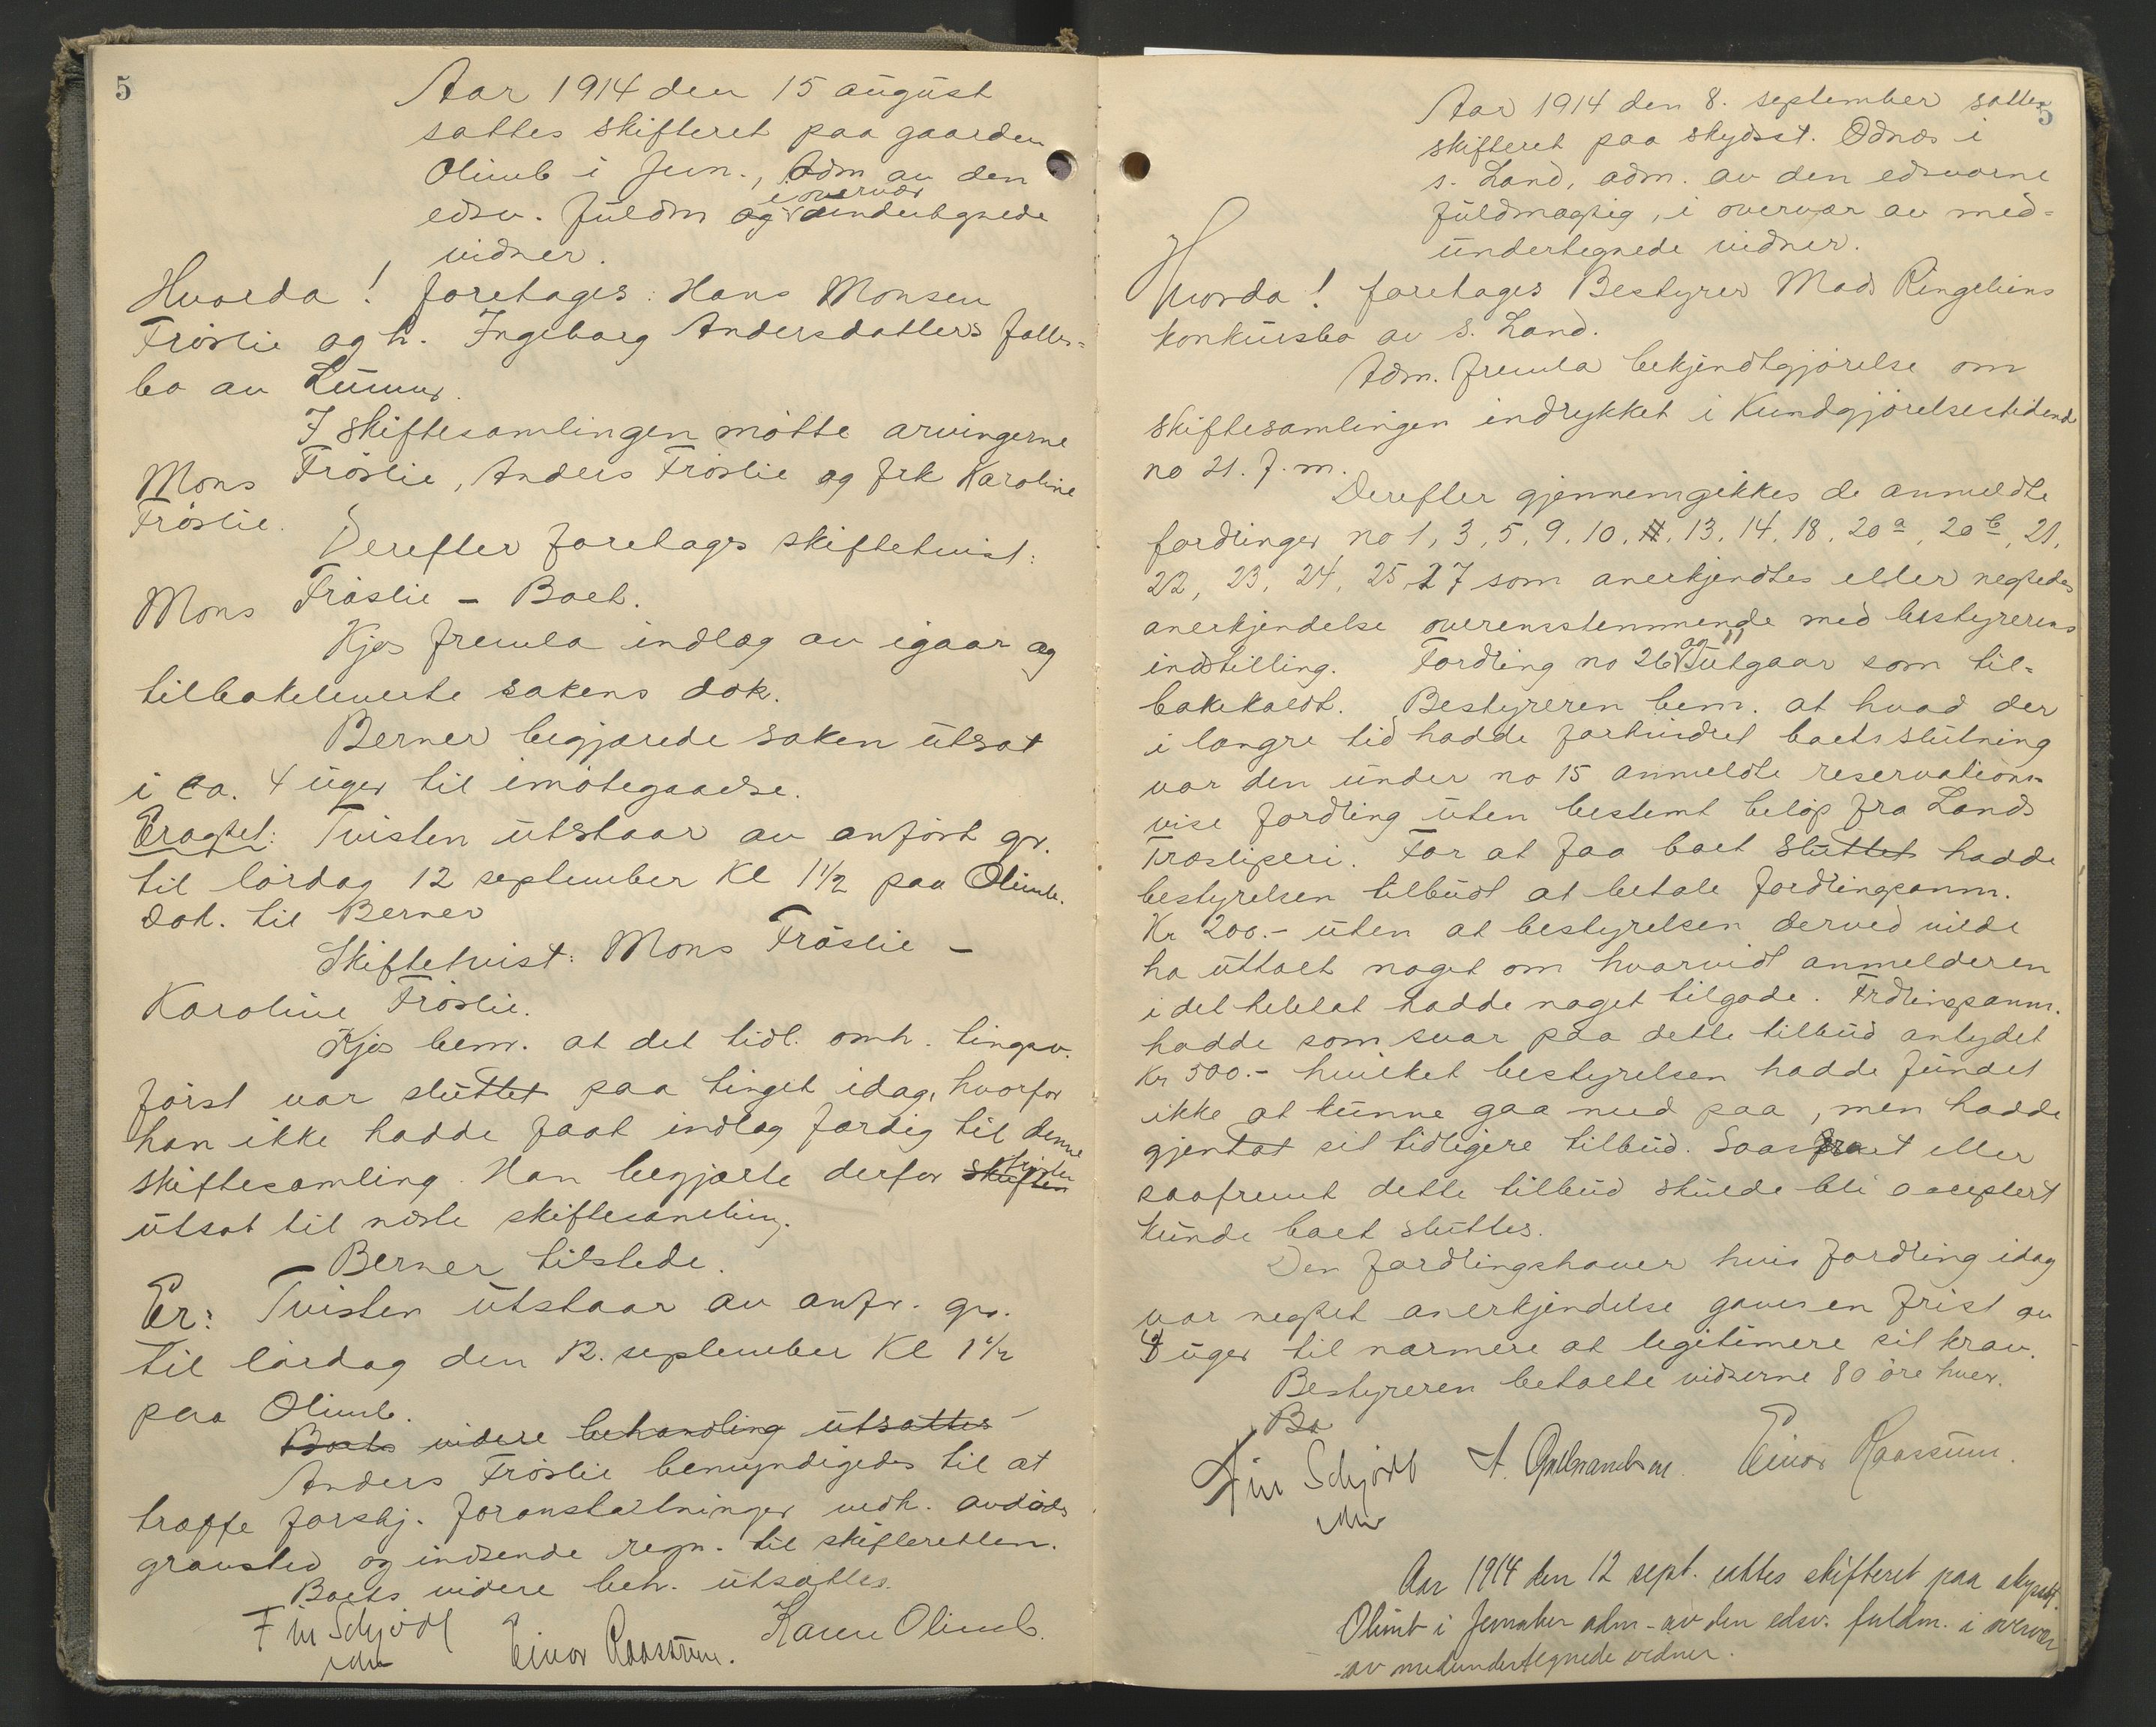 5
Aar 1914 den 15 august
sattes skifteret paa gaarden
Olimb i Jevn., adm av den
edsv. fuldm og i overvær undertegnede
vidner.
Hvorda! foretages: Hans Monsen
Fröslie og h. Ingeborg Andersdatters fælles-
bo av Lunner.
I skiftesamlingen mötte arvingerne
Mons Fröslie, Anders Fröslie og frk Karoline
Fröslie.
Derefter foretages skiftetvist:
Mons Fröslie - Boet.
Kjos fremla indlæg av igaar og
tilbakeleverte sakens dok.
Berner begjærede saken utsat
i ca. 4 uger til imötegaaelse.
Eragtet: Tvisten utstaar av anfört gr.
til lördag 12 september Kl 1 1/2 paa Olimb.
Dok. til Berner
Skiftetvist: Mons Fröslie -
Karoline Fröslie.
Kjos bem. at det tidl. omh. tingsv.
först var sluttet paa tinget idag, hvorfor
han ikke hadde faat indlæg færdig til denne
skiftesamling. Han begjærte derfor skiften tvisten
utsat til næste skiftesamling.
Berner tilstede.
Er: Tvisten utstaar av anfr. gr.
til lördag den 12. september Kl 1 1/2
paa Olimb.
Boets videre behandling utsattes
Anders Fröslie bemyndigedes til at
træffe forskj. foranstaltninger vedk. avdödes
gravsted og indsende regn. til skifteretten.
Boets videre beh. utsattes.
Fin Schjödt Einar Raassum. Karen Olimb.
edsv
5
Aar 1914 den 8. september sattes
skifteret paa skydsst. Odnæs i
s. Land, adm. av den edsvorne
fuldmægtig, i overvær av med-
undertegnede vidner.
Hvorda! foretages Bestyrer Mads Ringeliens
konkursbo av S. Land.
Adm. fremla bekjendtgjörelse om
skiftesamlingen indrykket i Kundgjörelsestidende
no 21. f. m.
Derefter gjennemgikkes de anmeldte
fordringer no 1, 3, 5, 9, 10, 11, 13, 14, 18, 20a, 20b, 21,
22, 23, 24, 25, 27 som anerkjendtes eller negtedes
anerkjendelse overensstemmende med bestyrerens
indstilling. Fordring no 26 og 11 utgaar som til-
bakekaldt. Bestyreren bem. at hvad der
i længre tid hadde forhindret boets slutning
var den under no 15 anmeldte reservations-
vise fordring uten bestemt belöp fra Lands
Træsliperi. For at faa boet sluttet hadde
bestyrelsen tilbudt at betale fordringsanm.
Kr 200.- uten at bestyrelsen derved vilde
ha uttalt noget om hvorvidt anmelderen
i det hele tat hadde noget tilgode. Frdringsanm.
hadde som svar paa dette tilbud antydet
Kr 500.- hvilket bestyrelsen hadde fundet
ikke at kunne gaa med paa, men hadde
gjentat sit tidligere tilbud. Saasnart eller
saafremt dette tilbud skulde bli acceptert
kunde boet sluttes.
Den fordringshaver hvis fordring idag
var negtet anerkjendelse gaves en frist av
4 uger til nærmere at legitimere sit krav.
Bestyreren betalte vidnerne 80 öre hver.
Bo
Fin Schjödt A. Einar Raassum.
edsv
Aar 1914 den 12 sept. sattes skifteret paa skydsst.
Olimb i Jevnaker adm. av den edsv. fuldm. i overvær
av medundertegnede vidner.